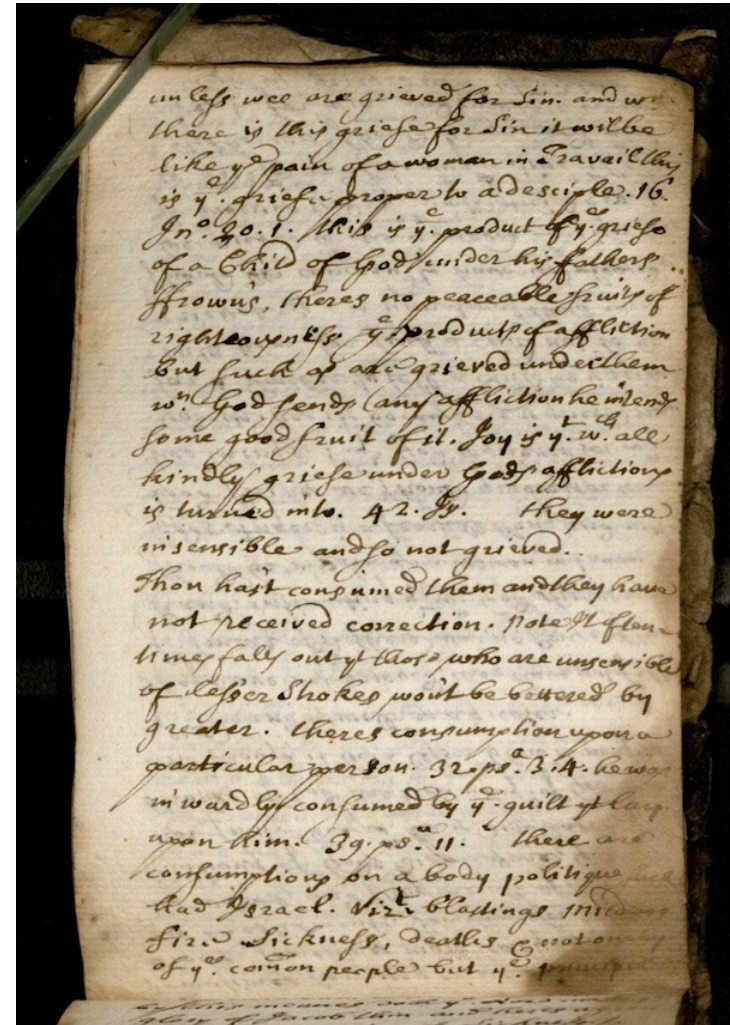 unless wee are grieved for Sin. and wn.
there is this griefe for Sin it wil be
like ye pain of a woman in Travail this
is ye. griefe proper to a desciple. 16.
Jno. 20. 1. this is ye. product of ye. griefe
of a Child of God under his fathers
ffrowns, theres no peaceable fruits of
righteousness ye. products of affliction
but such as are grieved under them
wn. God sends any affliction he intends
some good fruit of it. Joy is yt. wch. all
kindly griefe under Gods afflictions
is turned into. 42. Js. they were
insensible and so not grieved.
Thou hast consumed them and they have
not received correction. Note It often-
times falls out yt those who are unsensible
of lesser Strokes wont be bettered by
greater. theres consumption upon a
particular person. 32. ps. 3. 4. he was
inwardly consumed by ye. guilt yt lay
upon him. 39. ps. 11. there are
consumptions on a body politique such
had Israel. Vizt. blastings mildews
fire Sickness, deaths & not only
of ye. comon people but ye.
by this means
glory of Jacob thin and